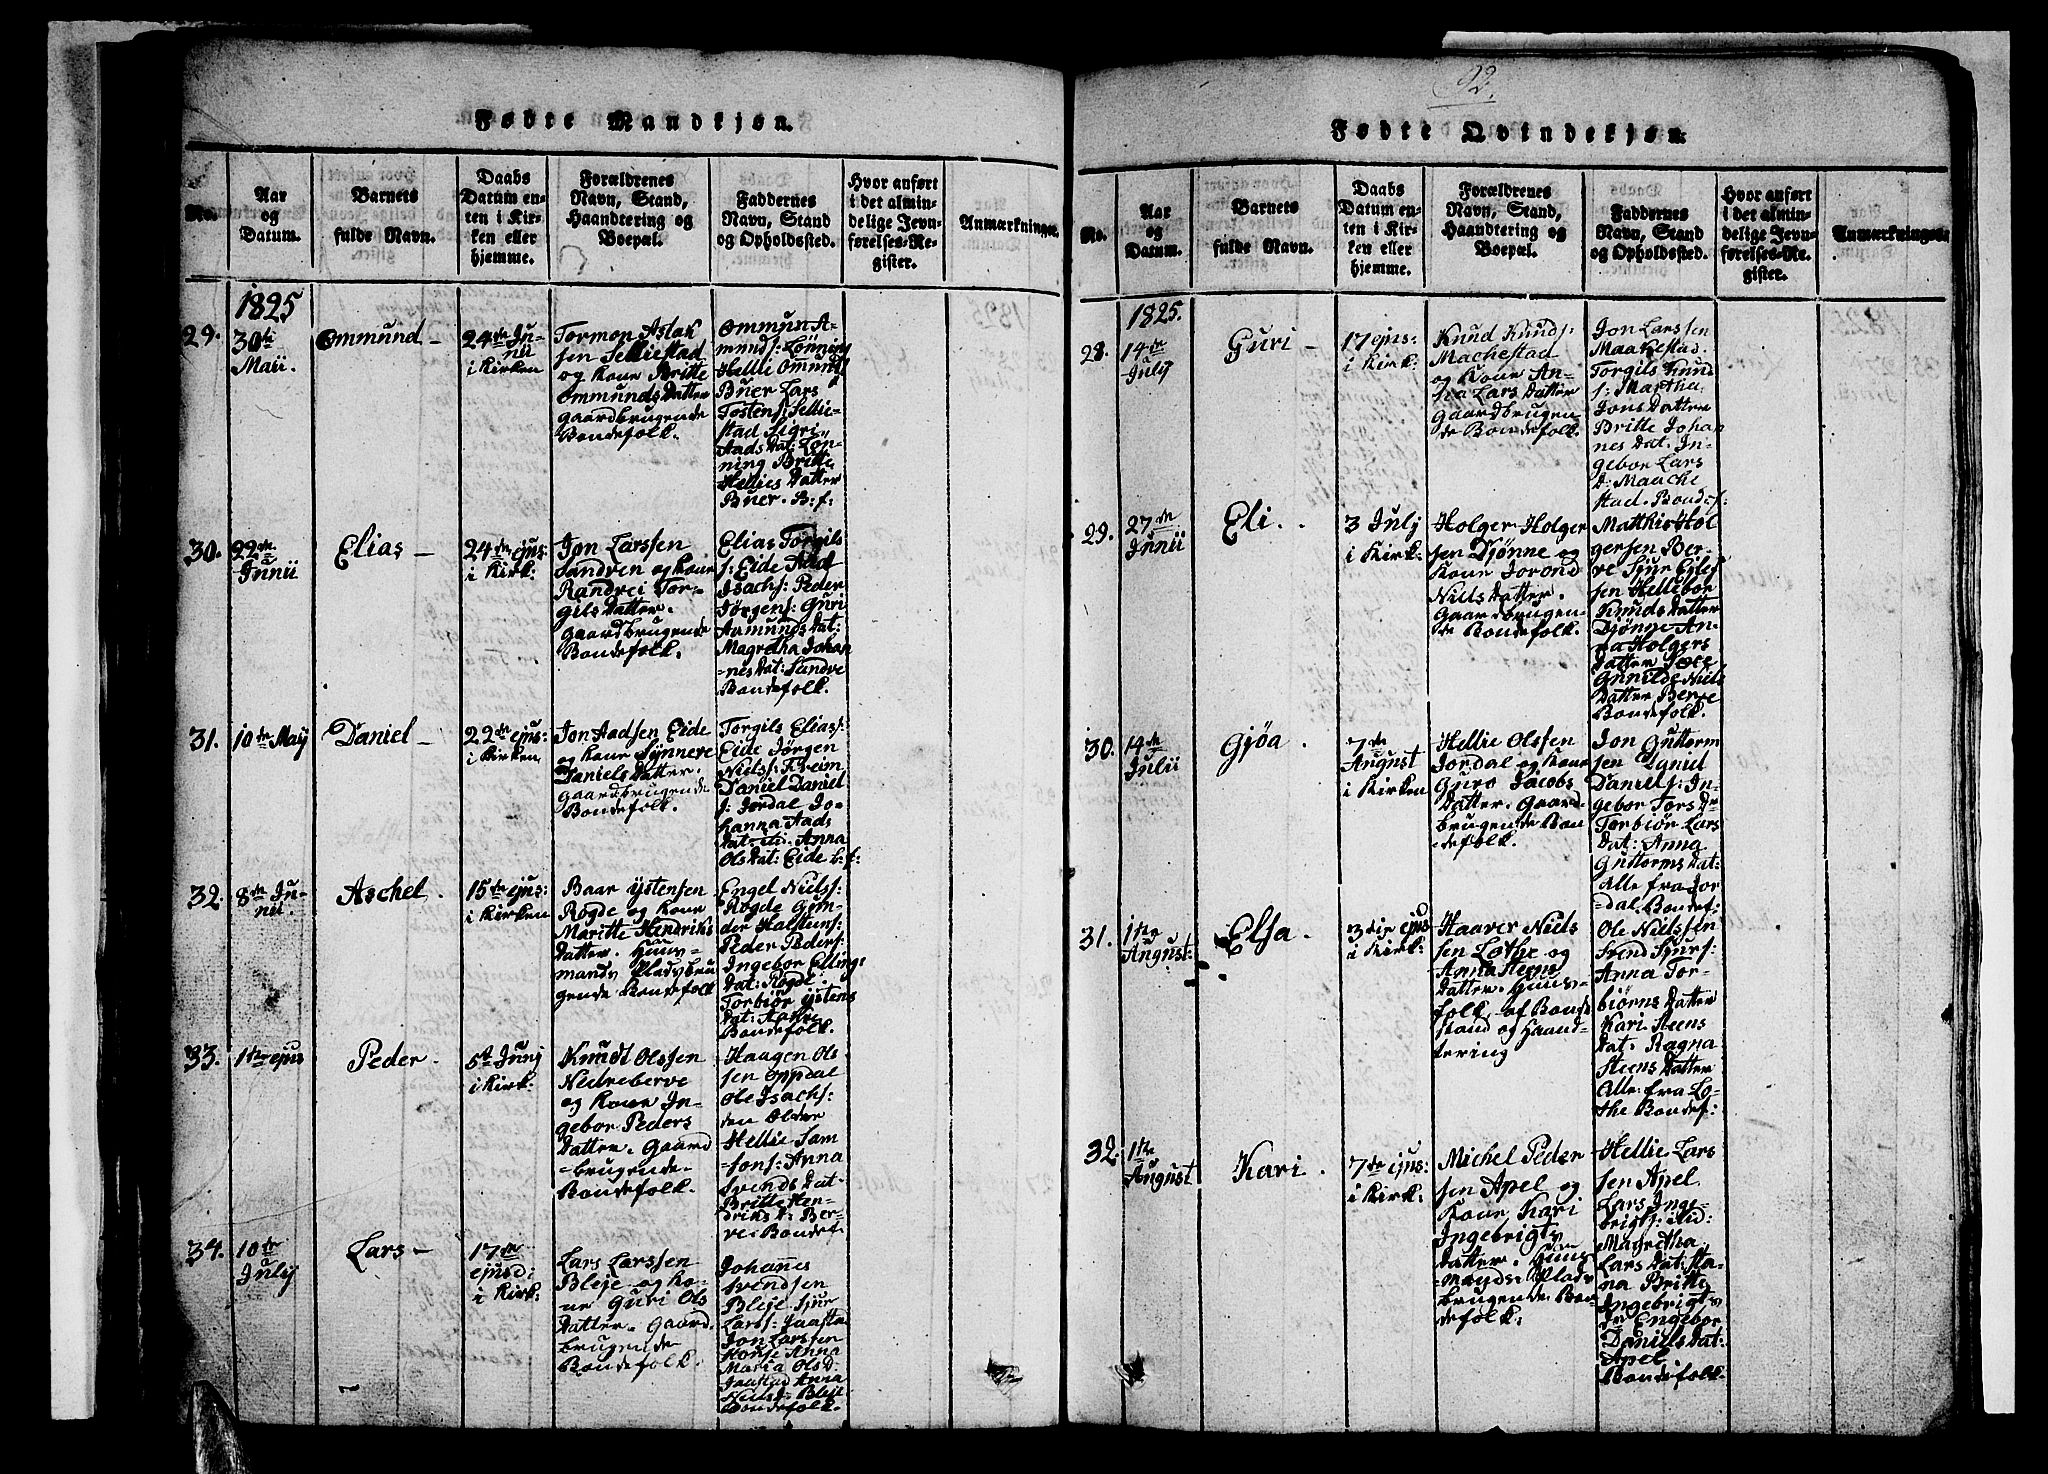 92.
Fødte Mandkjøn.
No.
Aar
og
Datum.
Barnets
fulde Navn.
Daabs
Datum en-
ten i Kir-
ken eller
hjemme.
Forældrenes
Navn, Stand,
Haandtering og
Boepæl.
Faddernes
Navn, Stand
og Opholdssted.
Hvor anført
i det almin-
delige Jevn-
førelses-Re-
gister.
Anmærkninger.
1825
29.
30te
Maii.
Ommund
24de Ju-
nii
i Kirken
Tormon Aslak
sen Selliestad
og Kone Britte
Ommunds Datter
gaardbrugende
Bondefolk.
Ommun A-
munds: Lønning
Hellie Ommun
Buer Lars
Tostens: Sellie-
stad Sigri
Aads Dat: Løn-
ning Britte
Hellies Datter
Buer. B: f:
30.
22de
Junii
Elias
24de ejus:
i Kirk:
Jon Larssen
Sandven og Kone
Randvei Tor-
gils Datter.
gaardbrugende
Bondefolk.
Elias Torgils
s: Eide Aad
Isachs: Peder
Jørgens: Guri
Aamunds Dat:
Magretha Johan
-nes Dat: Sandve
Bondefolk.
31.
10de Maij
Daniel
22de ejus:
i Kirken
Jon Aadsen Eide
og Kone Synneve
Daniels Datter.
gaardbrugende
Bondefolk.
Torgils Elias s:
Eide Jørgen
Niels s: Freim
Daniel Daniel
s: Jordal Jo-
hanna Aads
Dat: Anna
Ols Dat: Eide b: f:
32.
8de Ju-
nii.
Aschel.
15de ejus:
i Kirken
Baar Ystensen
Rogde og Kone
Maritte Hendriks
Datter. Huus
mands Plads bru
gende Bondefolk
Engel Niels s:
Rogde Gun-
der Halsteins:
Peder Peders:
Ingebor Elling:
Dat: Rogde
Torbiør Ystens
Dat: Aarhe
Bondefolk.
33.
1te ejus
Peder
5te Junj
i Kirk:
Knudt Olssen
Nedreberve
og Kone In-
gebor Peders
Datter. Gaard
-brugende
Bondefolk.
Haagen Ols
sen Oppdal
Ole Isachs:
Hellie Sam
-sons: Anna
Svends Dat
Britte Hen-
driks D: Ber-
vei Bondef:
34.
10de
Julij
Lars
17de
ejusd:
i Kirk:
Lars Larssen
Bleje og Ko-
ne Guri Ols
Datter. Gaard
brugende
Bondefolk.
Johannes
Svendsen
Bleje Sjur
Lars s: Jaasta
Jon Larssen
Anna
Maria Ols D:
Jaastad Anna
Niels D: Bleje
Bondefolk.
Fødte Qvindekjøn.
No.
Aar
og
Datum.
Barnets
fulde Navn.
Daabs
Datum en-
ten i Kir-
ken eller
hjemme.
Forældrenes
Navn, Stand,
Haandtering og
Boepæl.
Faddernes
Navn, Stand
og Opholdssted.
Hvor anført
i det almin-
delige Jevn-
førelses-Re-
gister.
Anmærkninger.
1825.
28.
14de
July
Guri
17 ejus
i Kirk:
Knud Knuds:
Machestad
og Kone An-
na Lars Datter
Gaardbrugen-
de Bondefolk.
Jon Larssen
Maakestad.
Torgils Knud
s: Martha
Jons Datter
Britte Johan
nes Dat: In-
gebor Lars
D: Maache
stad. Bondef:
29.
27de
Junii
Eli.
3 Julj
i Kirk:
Holger Holger
sen Djønne og
Kone Jorond
Niels Datter.
Gaardbrugen-
de Bondefolk.
Matthis Hol
gersen Ber-
ve Sjur Eriks
sen Hellebor
Knuds Datter
Djønne An-
na Holgers
Datter
Gunilde Niels
Datter Berve
Bondefolk.
30.
14de
Julii
Gjøa.
7de
August
i Kirken
Hellie Olssen
Jordal og Kone
Guro Jacobs
Datter. Gaard-
brugende Bon
-defolk.
Jon Guttorm
sen Daniel
Daniels: In-
gebor Tors Dr
Torbiør Lars
Dat: Anna
Guttorms Dat:
Alle fra Jor
-dal. Bondef:
31.
1te
August
Elsa.
3die ejus
i Kirk:
Haaver Niels
sen Lothe og
Anna Steens
Datter. Huus-
folk af Bonde
stand og Haand
tering
Ole Nielssen
Svend Sjurs:
Anna Tor-
biørns Datter
Kari Steens
Dat: Ragna
Steens Datter
Alle fra Lo-
the Bondef:
32.
1te
August
Kari.
7de ejus:
i Kirk:
Michel Peder
sen Apel og
Kone Kari
Ingebrigts
Datter. Huus
-mands Plads
brugende Bon
defolk.
Hellie Lars
sen Apel
Lars Inge-
brigts:
Magretha
Lars Dat:
Britte
Ingebrigts
Dr Engebor
Daniels Dat:
Apel
Bondefolk.